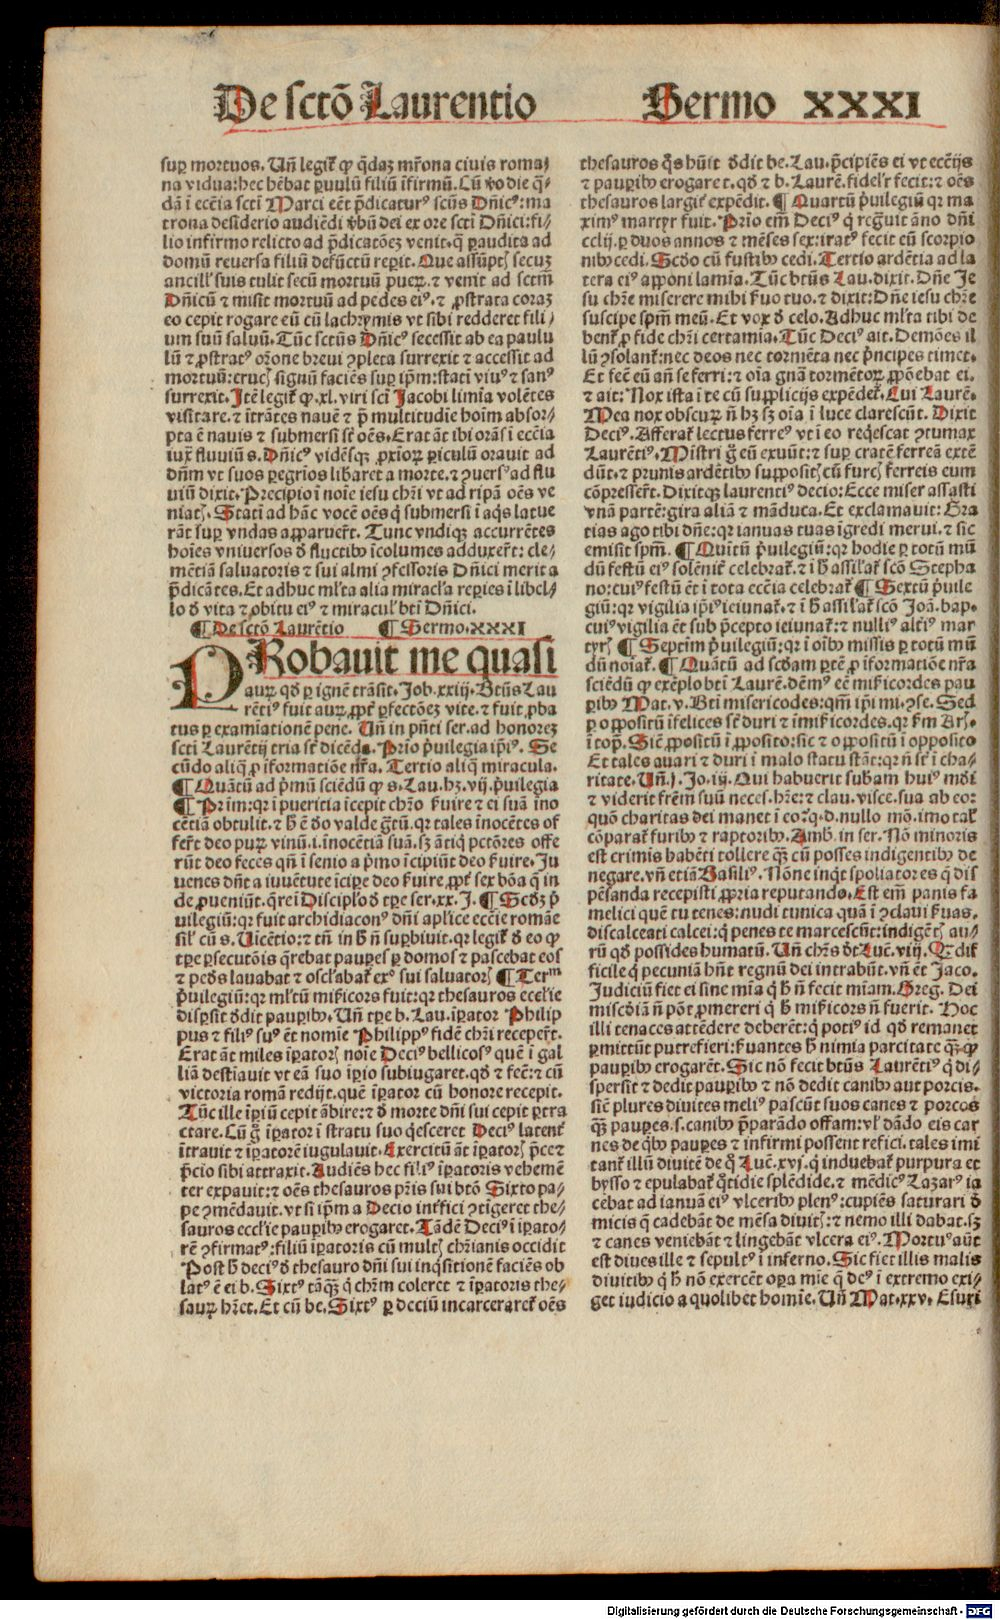 De sctō Laurentio Sermo XXXI
suꝑ mortuos. Uñ legiť ꝙ q̄daꝫ mr̄ona civis roma⸗
na vidua: hec hēbat ꝑvulū filiū īfirmū. Cū ꝟo die q̄⸗
dā ī ecc̄ia scti Marci eēt p̄dicatur⁹ sctūs Dñic⁹: ma
trona desiderio audiēdi ꝟbū dei ex ore scti Dñici: fi⸗
lio infirmo relicto ad p̄dicatōeꝫ venit. q̄ ꝑaudita ad
domū reversa filiū defūctū reꝑit. Que assūptꝭ secuꝫ
ancillꝭ suis tulit secū mortuū pueꝝ. ⁊ venit ad sctm̄
Dñicū ⁊ misit mortuū ad pedes ei⁹. ⁊ ꝓstrata coraꝫ
eo cepit rogare eū cū lachrymis vt sibi redderet fili⸗
um suū salvū. Tūc sctūs Dñic⁹ secessit ab ea paulu
lū ⁊ ꝓstrat⁹ or̄one brevi ꝯpleta surrexit ⁊ accessit ad
mortuū: crucꝭ signū faciēs suꝑ ip̄m: stati viv⁹ ⁊ san⁹
surrexit. Itē legiť ꝙ .xl. viri sci Jacobi limīa volētes
visitare. ⁊ ītrātes navē ⁊ p̄ multitudīe hoīm absor⸗
pta ē navis ⁊ submersi sť oēs. Erat āt ibi orās ī ecc̄ia
iuxͣ fluviū s. Dñic⁹ vidēsqꝫ ꝓxioꝝ ꝑiculū oravit ad
dñm vt suos ꝑegrīos libaret a morte. ⁊ ꝯvers⁹ ad flu
viū dixit. Precipio ī noīe iesu chri vt ad ripā oēs ve
niatꝭ. Stati ad hāc vocē oēs q̇ submersi ī aq̇s latue
rāt suꝑ vndas apparuerť. Tunc vndiqꝫ accurrētes
hoīes vniversos d̄ fluctibꝰ īcolumes adduxerť: cle⸗
mētiā salvatoris ⁊ sui almi ꝯfessoris Dñici merita
p̄dicātes. Et adhuc ml̄ta alia miracl̄a reꝑies ī libel⸗
lo d̄ vita ⁊ obitu ei⁹ ⁊ miraculꝭ bti Dñici.
¶ De sctō Laurētio ¶ Sermo. XXXI
PRobavit me quasi
auꝝ qd̄ ꝑ ignē trāsit. Job. xxiij. Btūs Lau
rēti⁹ fuit auꝝ, ꝓpť ꝑfectōeꝫ vite. ⁊ fuit ꝓba
tus ꝑ examīationē pene. Uñ in pn̄ti ser. ad honoreꝫ
scti Laurētij tria sť dicēda. Prīo p̄uilegia ip̄i⁹. Se
cūdo aliq̇ ꝓ īformatiōe nr̄a. Tertio aliq̇ miracula.
¶ Quātū ad p̄mū sciēdū ꝙ s. Lau. hꝫ. vij. p̄uilegia
¶ Prīm: qꝛ ī pueritia īcepit chr̄o ẜuire ⁊ ei suā īno
cētiā obtulit. ⁊ h̄ ē d̄o valde ḡtū. qꝛ tales īnocētes of
ferť deo puꝝ vinū. i. īnocētiā suā. sꝫ ātiq̇ pctōres offe
rūt deo feces qn̄ ī senio a p̄mo īcipiūt deo ẜuire. Ju
venes dn̄t a iuvētute īciꝑe deo ẜuire, ꝓpť sex bōa q̄ in
de ꝓveniūt. q̄re ī Discipl̄o d̄ tꝑe ser. xx. J. ¶ Scd̄ꝫ p̄
uilegiū: qꝛ fuit archidiacon⁹ dñi aplice ecc̄ie romāe
silꝭ cū s. Vicētio: ⁊ tn̄ in h̄ n̄ suꝑbivit. qꝛ legiť d̄ eo ꝙ
tꝑe ꝑsecutōis q̄rebat pauꝑes ꝑ domos ⁊ pascebat eos
⁊ peds lavabat ⁊ osclabať ex⁰ sui salvatorꝭ ¶ Terᵐ
p̄uilegiū: qꝛ ml̄tū mīsicors fuit: qꝛ thesauros ecclīe
disꝑsit d̄dit pauꝑibꝰ. Uñ tꝑe b. Lau. īꝑator Philip
pus ⁊ fili⁹ su⁹ ēt nomīe Philipp⁹ fidē chri receperť.
Erat āt miles īꝑatorꝭ noīe Deci⁹ bellicos⁹ quē ī gal
liā destīavit vt eā suo īꝑio subiugaret. qd̄ ⁊ fec̄: ⁊ cū
victoria romā redijt. quē īꝑator cū honore recepit.
Tūc ille īꝑiū cepit ābire: ⁊ d̄ morte dñi sui cepit ꝑtra
ctare. Cū ḡ īꝑator ī stratu suo q̇esceret Deci⁹ latenť
ītravit ⁊ īꝑatorē iugulavit. Exercitū āt īꝑatorꝭ p̄ce ⁊
p̄cio sibi attraxit. Audiēs hec fili⁹ īꝑatoris vehemē
ter expavit: ⁊ oēs thesauros pr̄is sui btō Sixto pa⸗
pe ꝯmēdavit. vt si ip̄m a Decio intfici ꝯtigeret the⸗
sauros ecclīe pauꝑibꝰ erogaret. Tādē Deci⁹ ī īꝑato⸗
rē ꝯfirmat⁹: filiū īꝑatoris cū multꝭ chr̄ianis occidit
Post h̄ deci⁹ d̄ thesauro dñi sui inq̇sitionē faciēs ob
lat⁹ ē ei b. Sixt⁹ tāqꝫ q̇ chrm̄ coleret ⁊ īꝑatoris the⸗
sauꝝ hr̄et. Et cū be. Sixt⁹ ꝑ deciū incarcerareť oēs
thesauros q̇s hūit d̄dit be. Lau. p̄cipiēs ei vt ecc̄ijs
⁊ pauꝑibꝰ erogaret. qd̄ ⁊ b. Laurē. fideľr fecit: ⁊ oēs
thesauros largiť expēdit. ¶ Quartū p̄uilegiū qꝛ ma
xim⁹ martyr fuit. Prīo em̄ Deci⁹ q̇ reg̈uit āno dñi
cclij. ꝑ duos annos ⁊ mēses sex: irat⁹ fecit cū scorpio
nibꝰ cedi. Scd̄o cū fustibꝰ cedi. Tertio ardētia ad la
tera ei⁹ apponi lamīa. Tūc btūs Lau. dixit. Dñe Je
su chr̄e miserere mihi ẜuo tuo. ⁊ dixit: Dñe iesu chr̄e
suscipe spm̄ meū. Et vox d̄ celo. Adhuc ml̄ta tibi de
benť ꝓ fide chri certamīa. Tūc Deci⁹ ait. Demōes il
lū ꝯsolanť: nec deos nec tormēta nec p̄ncipes timet.
Et fec̄ eū añ se ferri: ⁊ oīa gnā tormētoꝝ ꝓpōebat ei.
⁊ ait: Nox ista ī te cū supplicijs expēdeť. Cui Laurē.
Mea nox obscuꝝ n̄ hꝫ sꝫ oīa ī luce clarescūt. Dixit
Deci⁹. Afferať lectus ferre⁹ vt ī eo req̇escat ꝯtumax
Laurēti⁹. Mīstri ḡ eū exuūt: ⁊ suꝑ cratē ferreā extē
dūt. ⁊ prunis ardētibꝰ suppositꝭ cū furcꝭ ferreis eum
cōpresserť. Dixitqꝫ laurenti⁹ decio: Ecce miser assasti
vnā partē: gira aliā ⁊ māduca. Et exclamavit: Gra
tias ago tibi dñe: qꝛ ianuas tuas īgredi merui. ⁊ sic
emisit spm̄. ¶ Quītū p̄uilegiū: qꝛ hodie ꝑ totū mū
dū festū ei⁹ solēniť celebrať. ⁊ ī h̄ assilať scō Stepha
no: cui⁹ festū ēt ī tota ecc̄ia celebrať ¶ Sextū p̄uile
giū: qꝛ vigilia ip̄i⁹ ieiunať. ⁊ ī h̄ assilať scō Joā. bap.
cui⁹ vigilia ēt sub p̄cepto ieiunať: ⁊ nulli⁹ alti⁹ mar
tyrꝭ ¶ Septim̄ p̄uilegiū: qꝛ ī oībꝰ missis ꝑ totū mū
dū noīať. ¶ Quātū ad scd̄am ꝑtē ꝓ īformatiōe nr̄a
sciēdū ꝙ exēplo bti Laurē. dēm⁹ eē mīsicordes pau
ꝑibꝰ Mat. v. Bti misericodes: qm̄ ip̄i mi. ꝯse. Sed
ꝑ oppositū īfelices sť duri ⁊ īmīsicordes. qꝛ ẜm Ars.
ī top̄. Siē ꝓpositū ī ꝓposito: sic ⁊ oppositū ī opposito
Et tales avari ⁊ duri ī malo statu stāt: qꝛ n̄ sť ī cha⸗
ritate. Uñ. j. Jo. iij. Qui habuerit subam hui⁹ mūdi
⁊ viderit fr̄em suū neces. hr̄e: ⁊ clau. visce. sua ab eo:
quō charitas dei manet ī eo: q. d. nullo mō. imo taľ
cōparať furibꝰ ⁊ raptoribꝰ. Amb. in ser. Nō minoris
est crimis habēti tollere qꝫ cū posses indigentibꝰ de
negare. vñ etiā Basili⁹. Nōne inq̇t spoliator es q̇ dis
pēsanda recepisti ꝓpria reputando. Est em̄ panis fa
melici quē tu tenes: nudi tunica quā ī ꝯclavi ẜuas.
discalceati calcei: q̇ penes te marcescūt: indigētꝭ au⸗
rū qd̄ possides humatū. Uñ chr̄s d̄t Luc̄. viij. Q̇ dif
ficile q̇ pecuniā hn̄t regnū dei intrabūt. vñ ēt Jaco.
Judiciū fiet ei sine mīa q̇ h̄ n̄ fecit mīam. Greg. Dei
miscd̄iā n̄ pōt ꝓmereri q̇ h̄ mīsicors n̄ fuerit. Hoc
illi tenaces attēdere deberēt: q̇ poti⁹ id qd̄ remanet
ꝑmittūt putrefieri: ẜuantes h̄ nimia parcitate qꝫ ꝙ
pauꝑibꝰ erogarēt. Sic nō fecit btūs Laurēti⁹ q̇ di⸗
spersit ⁊ dedit pauꝑibꝰ ⁊ nō dedit canibꝰ aut porcis.
siē plures divites meli⁹ pascūt suos canes ⁊ porcos
qꝫ pauꝑes. s. canibꝰ p̄parādo offam: vľ dādo eis car
nes de q̇bꝰ pauꝑes ⁊ infirmi possent refici. tales imi
tanť illū divitē de q̊ Luc̄. xvj. q̇ induebať purpura et
bysso ⁊ epulabať q̊tidie splēdide. ⁊ mēdic⁹ Lazar⁹ ia
cēbat ad ianuā ei⁹ vlceribꝰ plen⁹: cupiēs saturari d̄
micis q̄ cadebāt de mēsa divitꝭ: ⁊ nemo illi dabat. sꝫ
⁊ canes veniebāt ⁊ lingebāt vlcera ei⁹. Mortu⁹ aūt
est dives ille ⁊ sepult⁹ ī inferno. Sic fiet illis malis
divitibꝰ q̇ h̄ nō exercēt oꝑa mīe q̄ de⁹ ī extremo exi⸗
get iudicio a quolibet homīe. Uñ Mat. xxv. Esuri
Digitalisierung gefördert durch die Deutsche Forschungsgemeinschaft - DFG